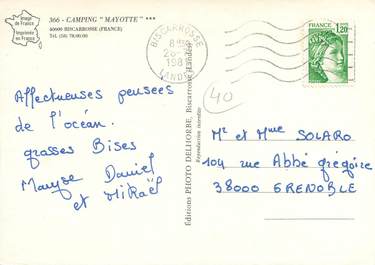 Image
de France
Imprimée
en France
366 - CAMPING "MAYOTTE" ***
40600 BISCARROSSE (FRANCE)
Tél. (58) 78.00.00
BISCARROSSE
LANDES
FRANCE
1,20
40
Affectueuses pensées
de l'océan.
grosses Bises
Maryse Daniel
et Mikaël
Editions PHOTO DELHORBE, Biscarrosse (Landes)
Reproduction interdite
Mr et Mme SOLARO
104 rue Abbé grégoire
38000 GRENOBLE